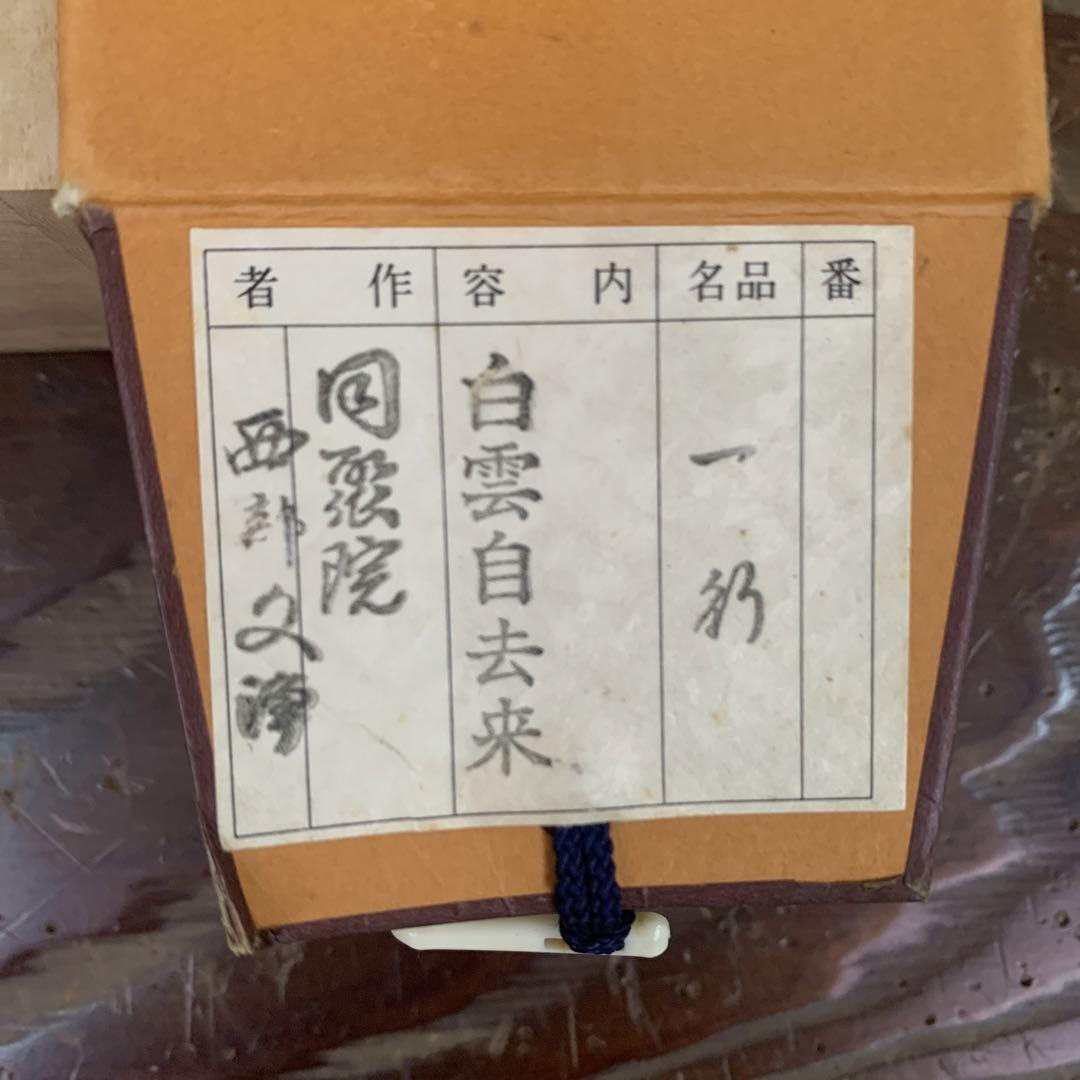 番
品名
一行
内容
白雲自去来
作者
同聚院
西部文浄